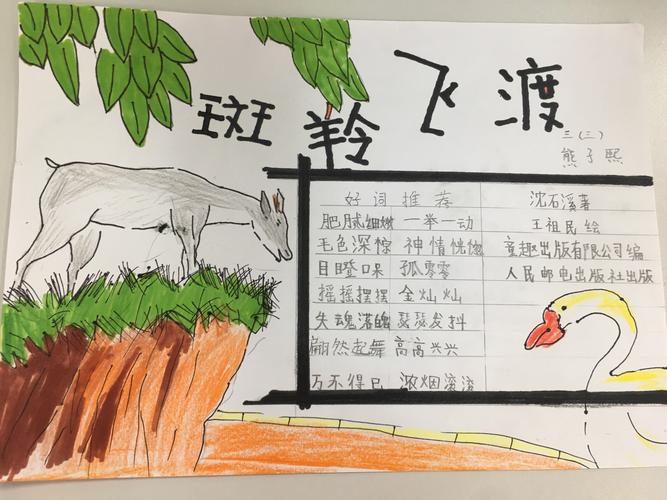 斑羚飞渡
三(三)
熊子熙
好词推荐
肥腻细嫩 一举一动
毛色深棕 神情恍惚
目瞪口呆 孤零零
摇摇摆摆 金灿灿
失魂落魄 瑟瑟发抖
翩然起舞 高高兴兴
万不得已 浓烟滚滚
沈石溪著
王祖民绘
童趣出版有限公司编
人民邮电出版社出版